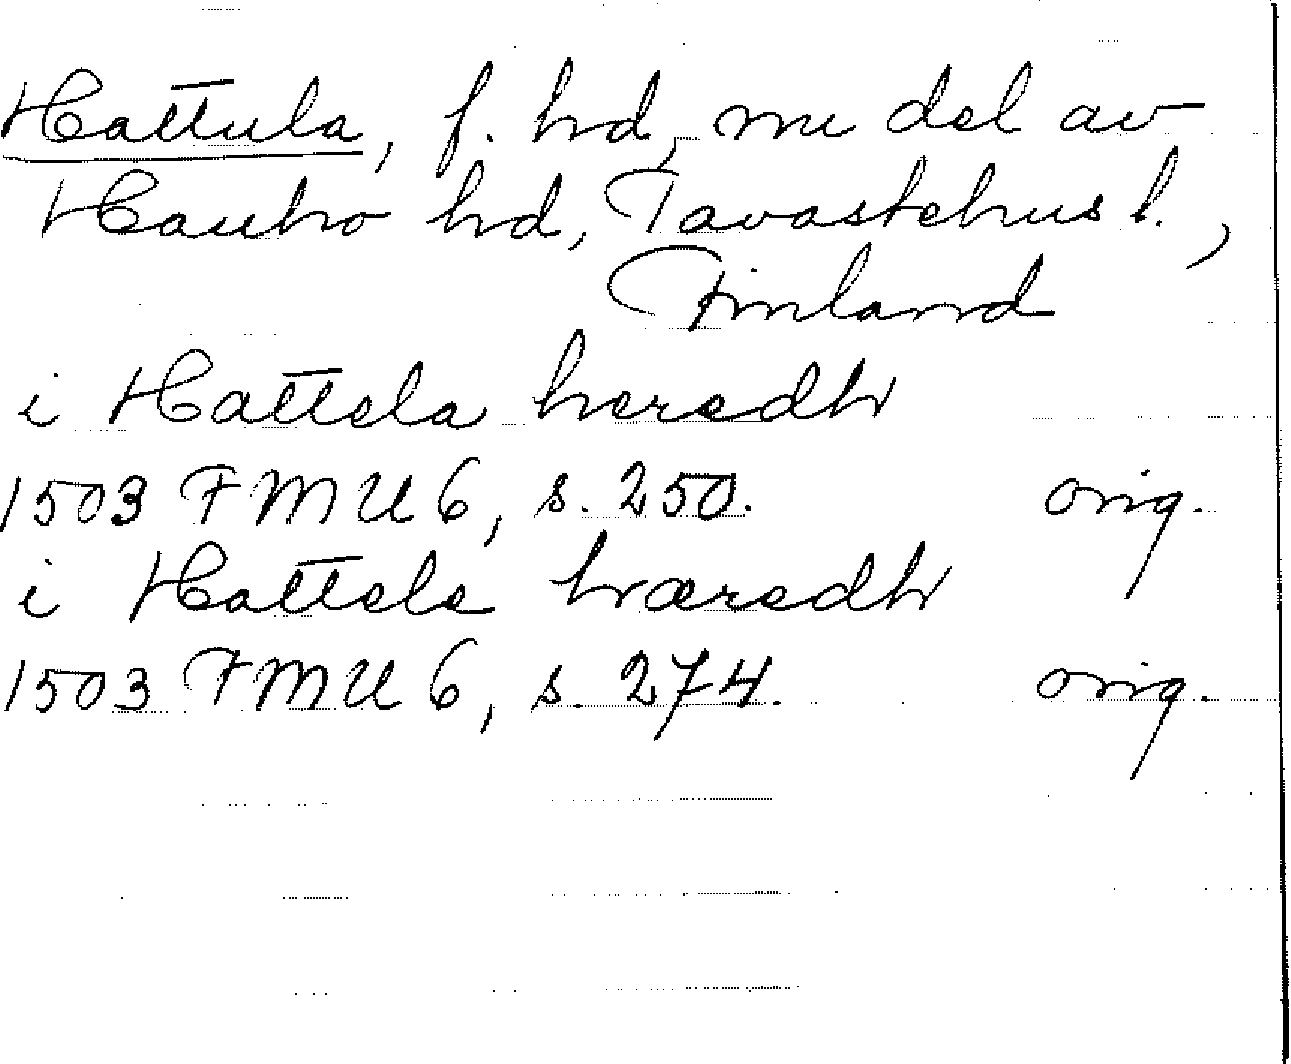 Hattula, f. hd, nu del av
Hauho hd, Tavastehus l.,
Finland
i Hattela heredh
1503 FMU 6, s. 250. orig.
i Hattele hæredh
1503 FMU 6, s. 274. orig.